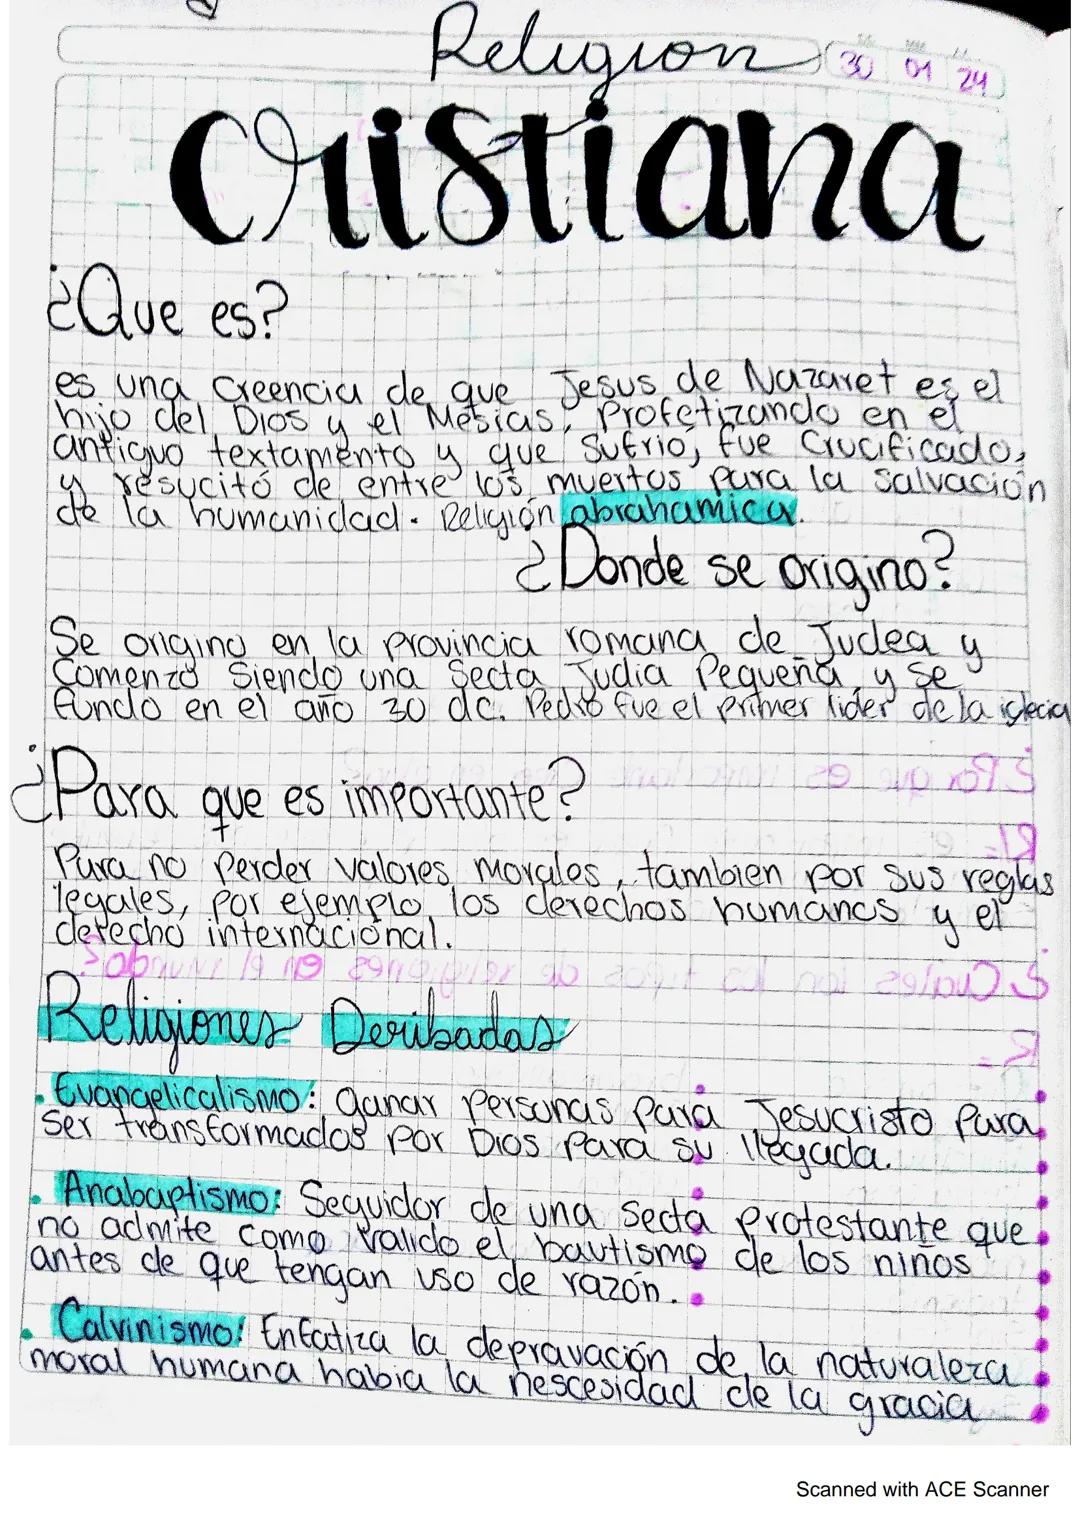 Religion
30 01 24
Cristiana
¿Que es?
es una creencia de que Jesus de Nazaret es el
hijo del Dios y el Mesias, Profetizando en el
antiguo textamento y que sufrio, fue Crucificado,
y resucitó de entre los muertos para la salvación
de la humanidad. Religión abrahamica.
¿Donde se origino?
Se origino en la provincia romana de Judea y
Comenzó siendo una Secta Judia Pequeña y se
fundo en el año 30 dc. Pedro fue el primer lider de la iglecia
¿Para que es importante?
Para no Perder valores morales, tambien por sus reglas
legales, por ejemplo los derechos humanos y el
derecho internacional.
Religiones Deribadas
. Evangelicalismo: ganar personas para Jesucristo para
ser transformados por Dios para su llegada.
. Anabaptismo: Seguidor de una secta protestante que
no admite como valido el bautismo de los niños
antes de que tengan uso de razón.
. Calvinismo: Enfatiza la depravación de la naturaleza
moral humana habia la nescesidad de la gracia
Scanned with ACE Scanner